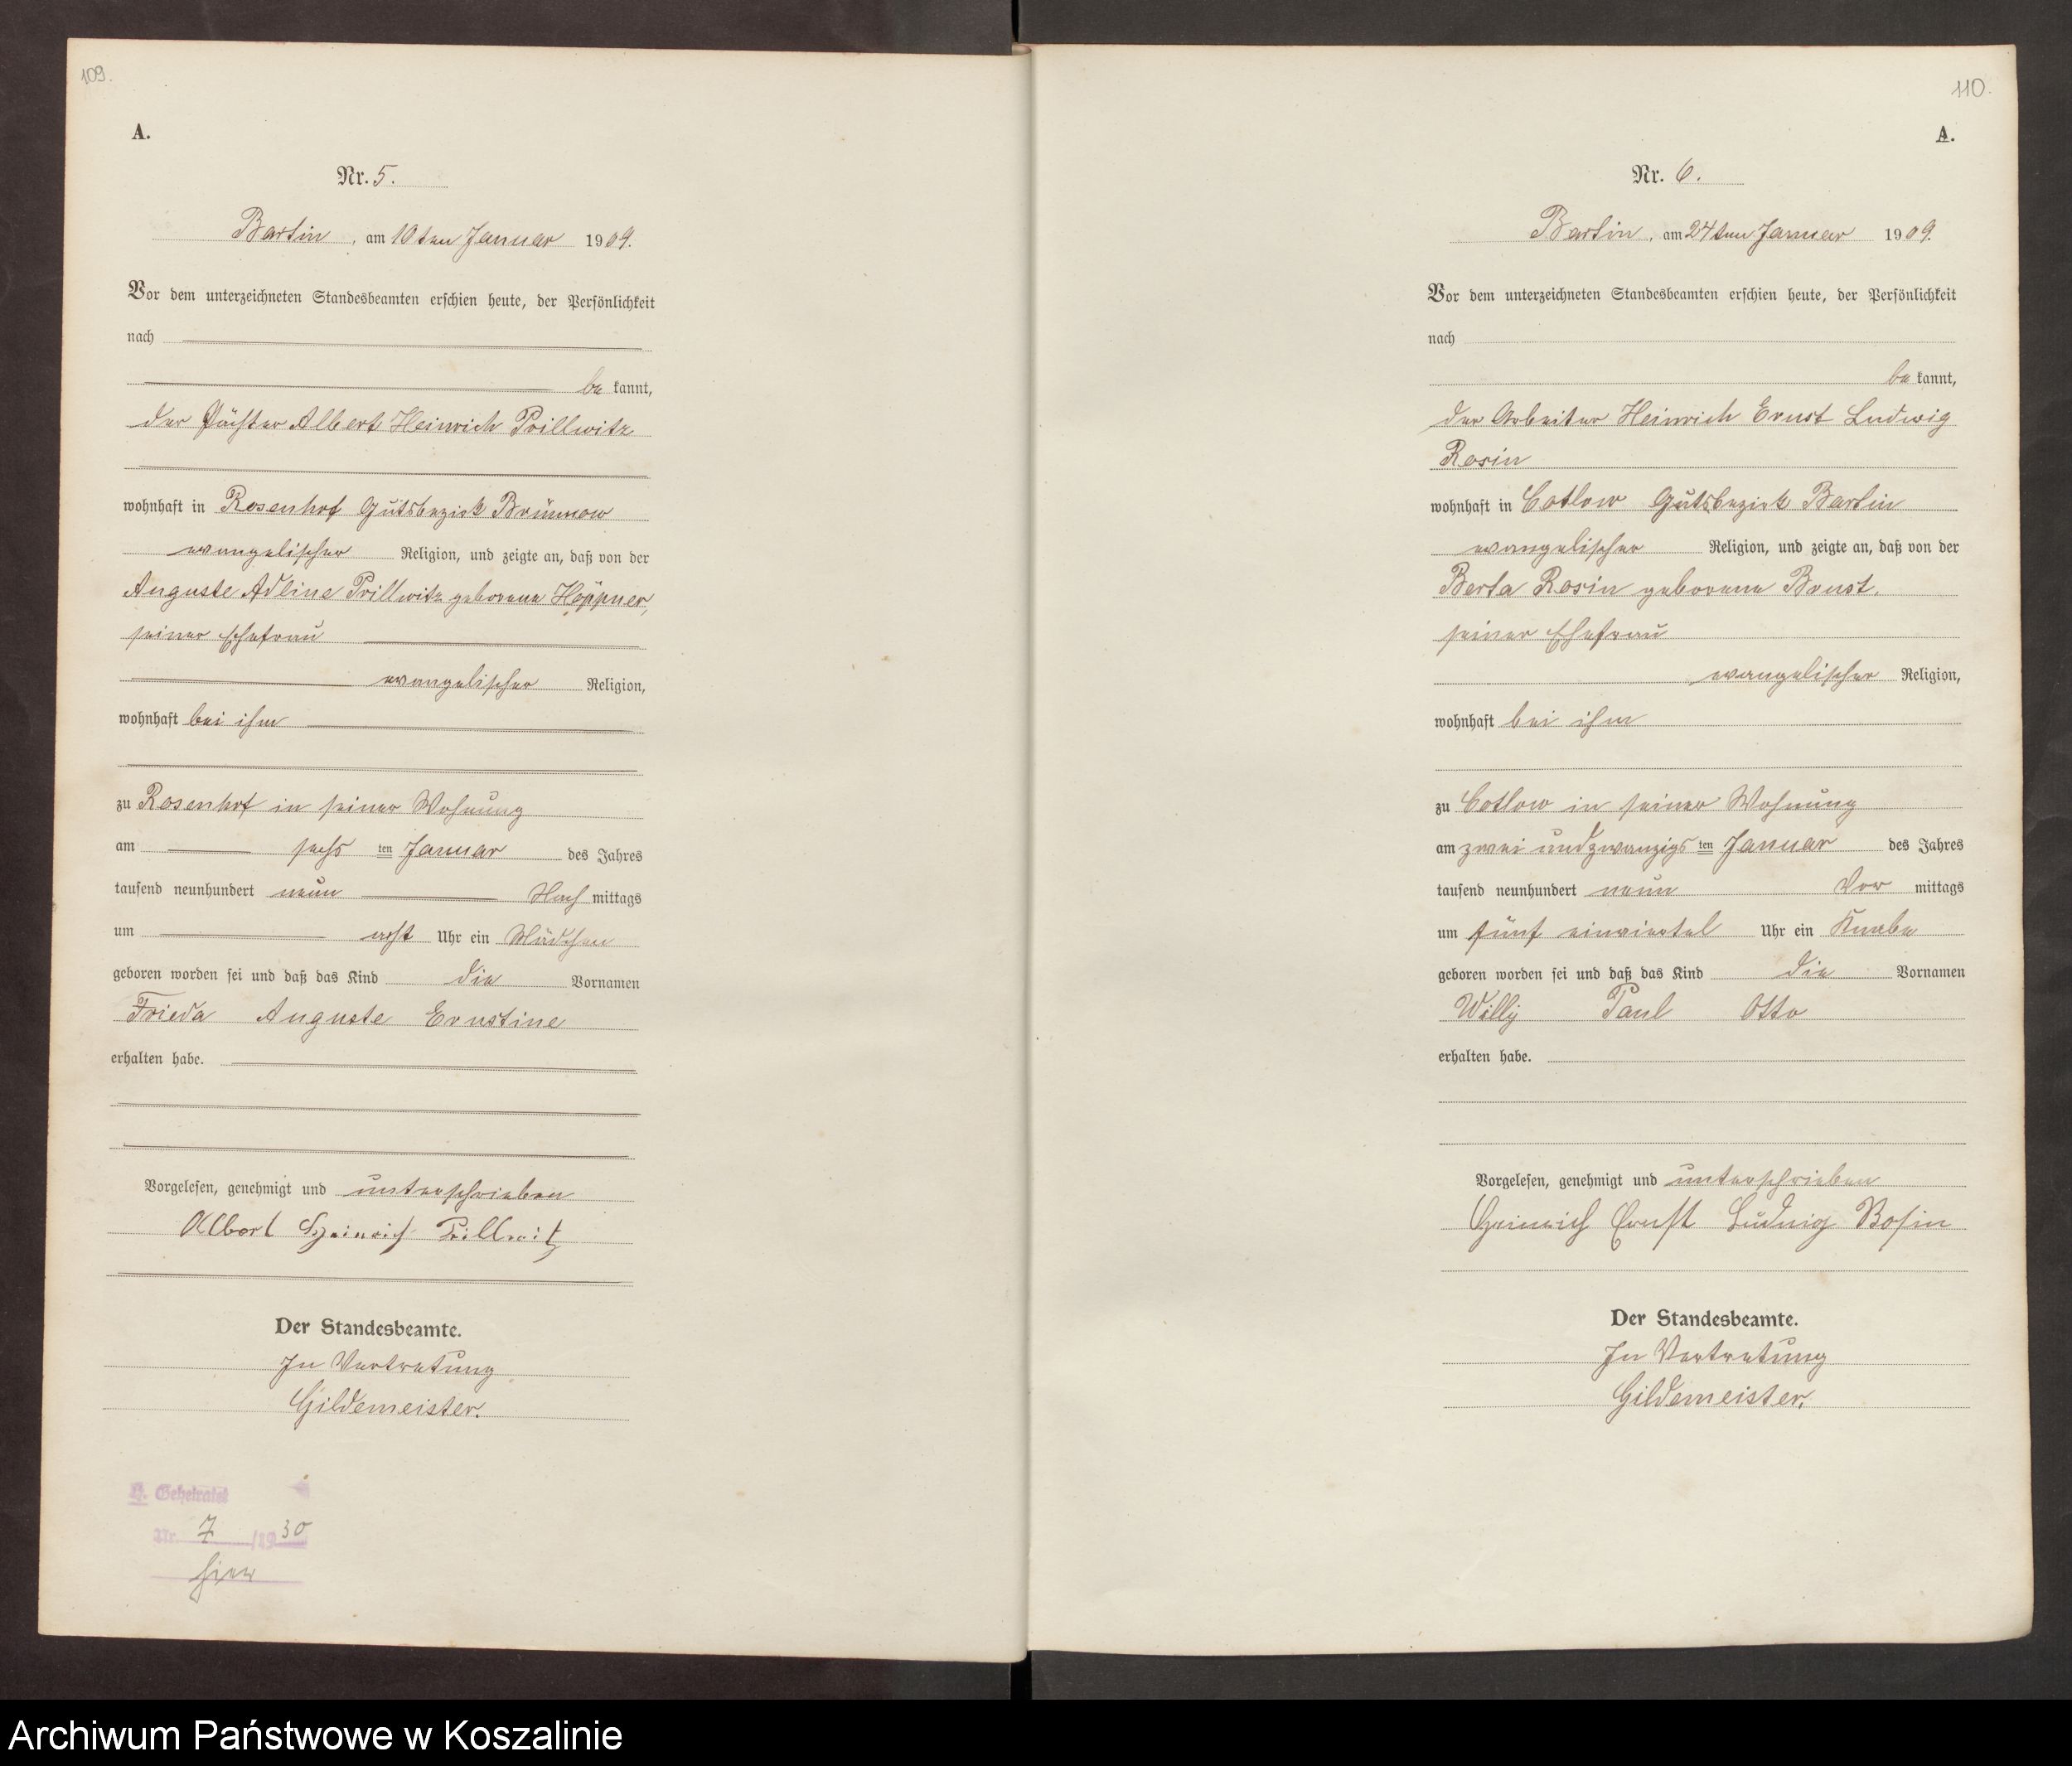 109.
A.
Nr. 5.
Bartin, am 10ten Januar 1909.
Vor dem unterzeichneten Standesbeamten erschien heute, der Persönlichkeit
nach
be kannt,
der Pächter Albert Heinrich Prillwitz
wohnhaft in Rosenhof Gutsbezirk Brünnow
evangelischer Religion, und zeigte an, daß von der
Auguste Adline Prillwitz geborene Höppner,
seiner Ehefrau
evangelischer Religion,
wohnhaft bei ihm
zu Rosenhof in seiner Wohnung
am sechs ten Januar des Jahres
tausend neunhundert neun Nach mittags
um acht Uhr ein Mädchen
geboren worden sei und daß das Kind die Vornamen
Frieda Auguste Ernstine
erhalten habe.
Vorgelesen, genehmigt und unterschrieben
Albert Heinrich Prillwitz
Der Standesbeamte.
In Vertretung
Gildemeister.
Geheiratet
Nr. 7 /19 30
hier
110.
A.
Nr. 6.
Bartin, am 24ten Januar 1909.
Vor dem unterzeichneten Standesbeamten erschien heute, der Persönlichkeit
nach
be kannt,
der Arbeiter Heinrich Ernst Ludwig
Rosin
wohnhaft in Cotlow Gutsbezirk Bartin
evangelischer Religion, und zeigte an, daß von der
Berta Rosin geborene Brust.
seiner Ehefrau
evangelischer Religion,
wohnhaft bei ihm
zu Cotlow in seiner Wohnung
am zwei und zwanzigs ten Januar des Jahres
tausend neunhundert neun Vor mittags
um fünf einviertel Uhr ein Knabe
geboren worden sei und daß das Kind die Vornamen
Willy Paul Otto
erhalten habe.
Vorgelesen, genehmigt und unterschrieben
Heinrich Ernst Ludwig Rosin
Der Standesbeamte.
In Vertretung
Gildemeister.
Archiwum Państwowe w Koszalinie